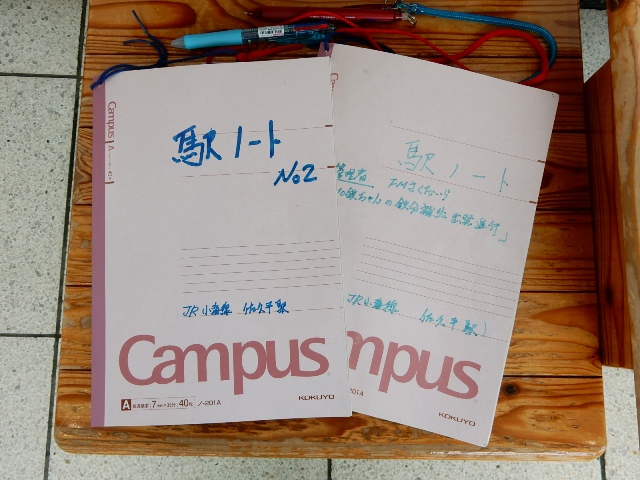 Campus
駅ノート
No2
JR小海線 佐久平駅
Campus
A 7mm×35行 40枚 ノ-201A
KOKUYO
駅ノート
管理者 FMさくだいら
鉄ちゃんの鉄分補給 出発進行」
JR小海線 佐久平駅
mpus
-201A
KOKUYO